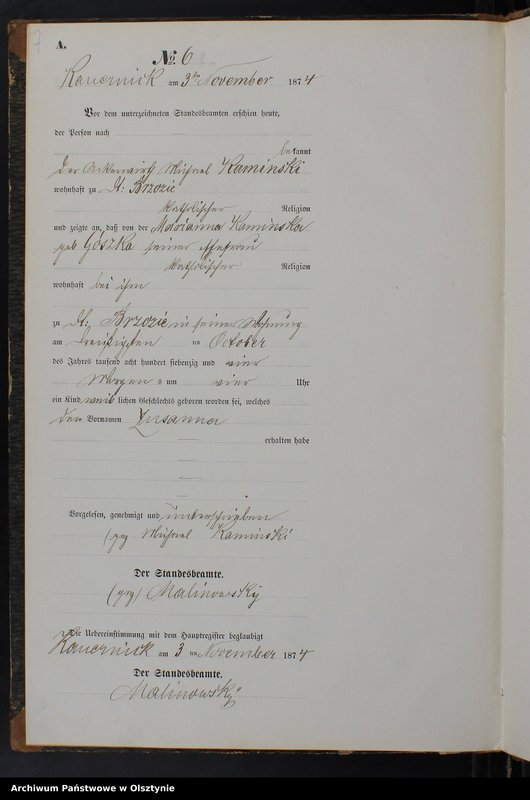 7
A.
№ 6
Kauernick am 3ten November 1874
Vor dem unterzeichneten Standesbeamten erschien heute,
der Person nach
bekannt
der Ackerwirth Michael Kaminski
wohnhaft zu Dt: Brzozie
katholischer Religion
und zeigte an, daß von der Marianna Kaminska
geb Goszka seiner Ehefrau
katholischer Religion
wohnhaft bei ihm
zu Dt: Brzozie in seiner Wohnung
am dreißigsten ten October
des Jahres tausend acht hundert siebenzig und vier
Morgens um vier Uhr
ein Kind weiblichen Geschlechts geboren worden sei, welches
den Vornamen Zusanna
erhalten habe
Vorgelesen, genehmigt und unterschrieben
(gez Michael Kaminski
Der Standesbeamte.
(gez) Malinowsky
Die Uebereinstimmung mit dem Hauptregister beglaubigt
Kauernick am 3 ten November 1874
Der Standesbeamte.
Malinowsky
Archiwum Państwowe w Olsztynie